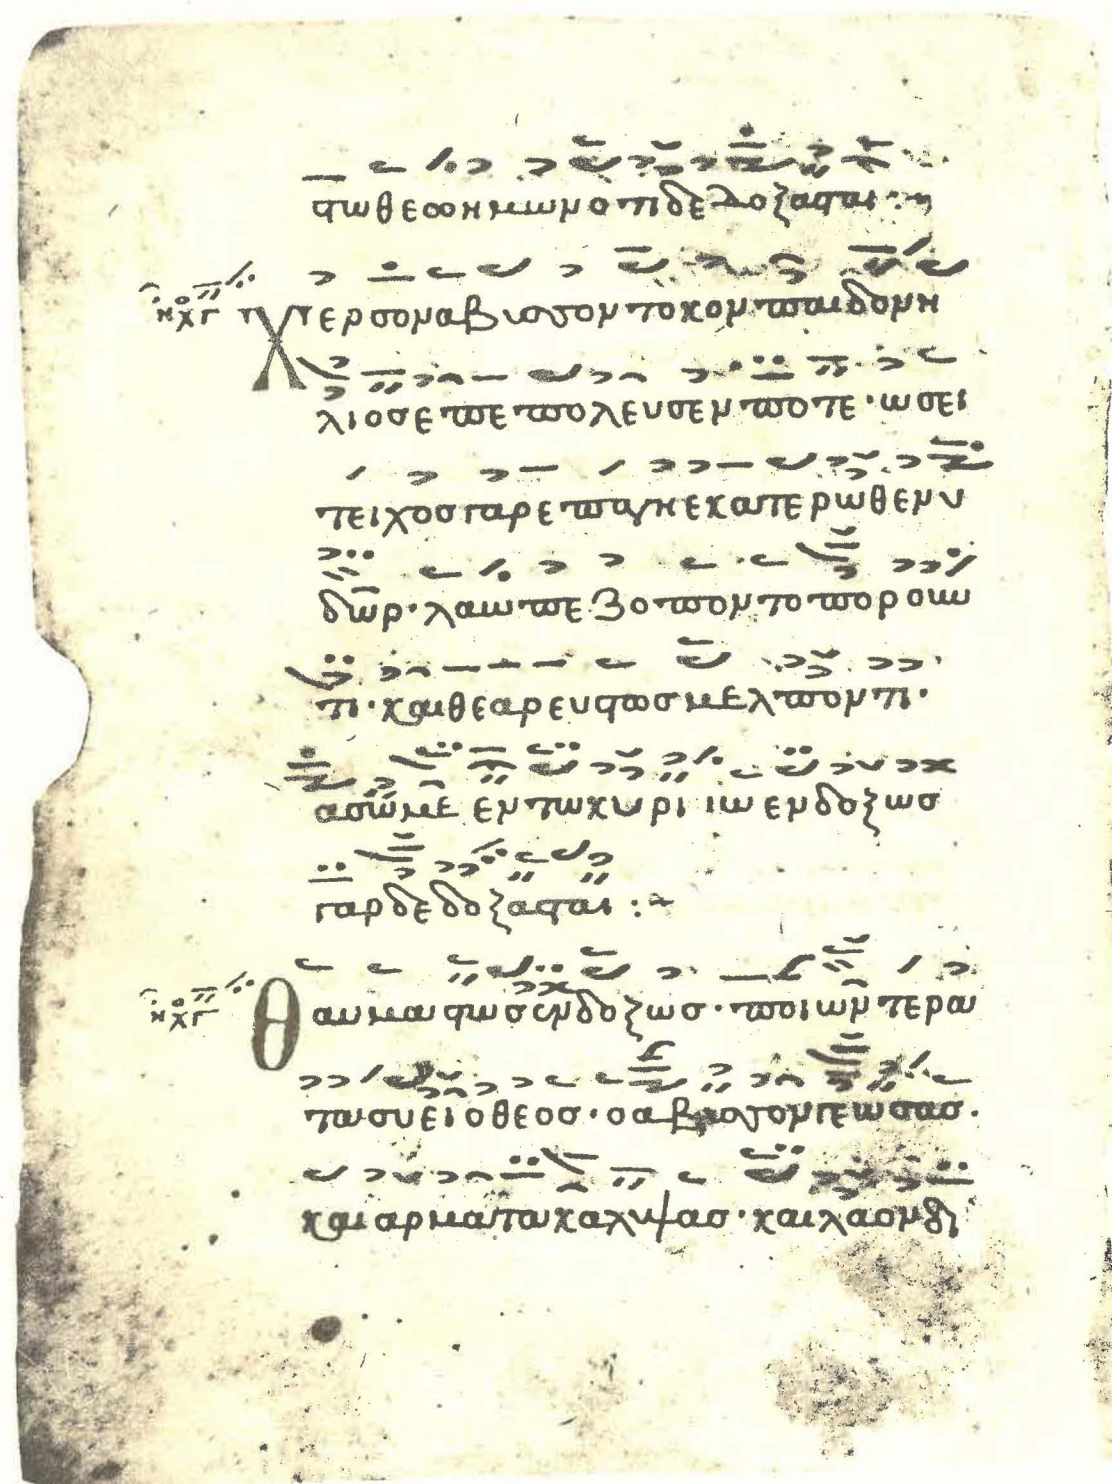 τωθεωημωνοτιδεδοξασται
Χερσοναβυσσοτοκονπαιδονη
λιοσεπεπολευσενποτε·ωσει
τειχοσγαρεπαγηεκατερωθενυ
δωρ·λαωπεζοποντοποροων
τι·καιθεαρεστωσμελποντι·
ασωμεεντωκυριιωενδοξωσ
γαρδεδοξασται:
Θαυμαστωσενδοξωσ·ποιωντερα
τασυειοθεοσ·οαβυσσονγεωσασ·
καιαρματακαλυψασ·καιλαονδι